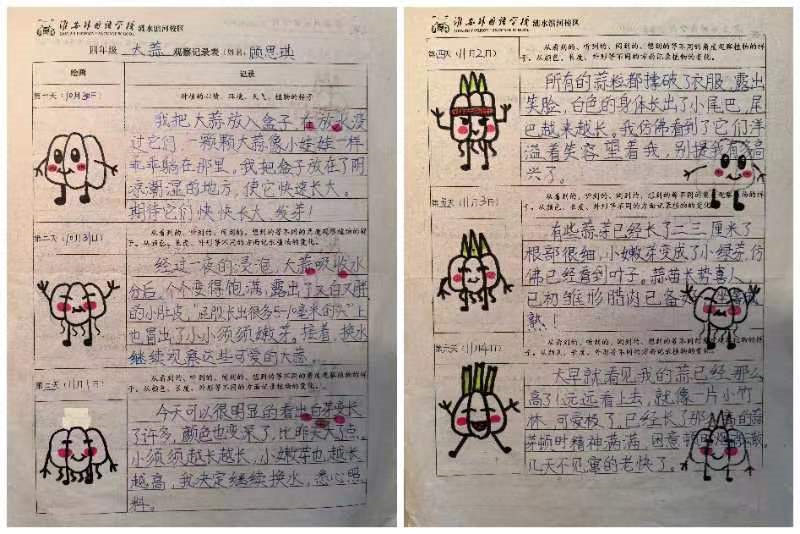 淮安外国语学校 涟水滨河校区
四年级 大蒜 观察记录表 (姓名): 顾思琪
绘画 记录
第一天(10月30日) 种植的心情、环境、天气、植物的样子
我把大蒜放入盒子,在放水没
过它们,一颗颗大蒜像小娃娃一样
乖乖躺在那里。我把盒子放在了阴
凉潮湿的地方,使它快速长大。
期待它们快快长大、发芽!
第二天(10月31日) 从看到的、听到的、闻到的、想到的等不同的角度观察植物的样
子。从颜色、长度、外形等不同的方面记录植物的变化。
经过一夜的浸泡,大蒜吸收水
分后,个个变得饱满,露出了又白又胖
的小肚皮,屁股长出很多5-10毫米的
也冒出了小小须须嫩芽。接着,换水
继续观察这些可爱的大蒜。
第三天(11月1日) 从看到的、听到的、闻到的、想到的等不同的角度观察植物的样
子。从颜色、长度、外形等不同的方面记录植物的变化。
今天可以很明显的看出白芽变长
了许多,颜色也变呆了,比昨天大了点。
小须须越长越长,小嫩芽也越长
越高,我决定继续换水,悉心照
料。
淮安外国语学校 涟水滨河校区
第四天(11月2日) 从看到的、听到的、闻到的、想到的等不同的角度观察植物的样
子。从颜色、长度、外形等不同的方面记录植物的变化。
所有的蒜粒都撑破了衣服,露出
笑脸,白色的身体长出了小尾巴,尾
巴越来越长。我仿佛看到了它们洋
溢着笑容,望着我,别提我有多高
兴了。
第五天(11月3日) 从看到的、听到的、闻到的、想到的等不同的角度观察植物的样
子。从颜色、长度、外形等不同的方面记录植物的变化。
有些蒜芽已经长了二三厘米了
根部很细,小嫩芽变成了小绿芽,仿
佛已经看到叶子。蒜苗长势喜人,
已初雏形腊肉已备
熟!
第六天(11月4日) 从看到的、听到的、闻到的、想到的等不同的角度观察植物的样
子。从颜色、长度、外形等不同的方面记录植物的变化。
大早就看见我的蒜已经那么
高了!远远看上去,就像一片小竹
林,可爱极了,已经长了那 的蒜
芽顿时精神满满,困意
几天不见寞的老快了。